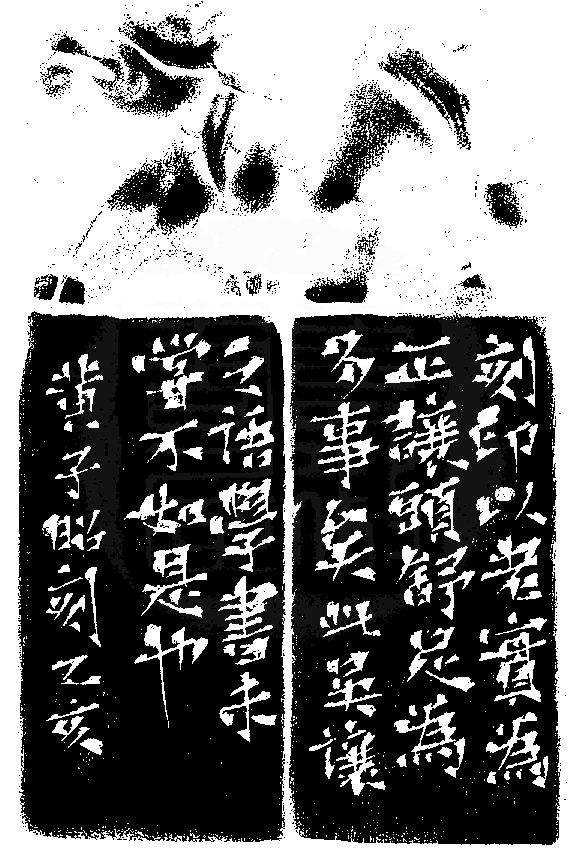 刻印以老實為
正讓頭舒足為
多事矣此吳讓
之語學書未
嘗不如是也
黃子昭刻乙亥